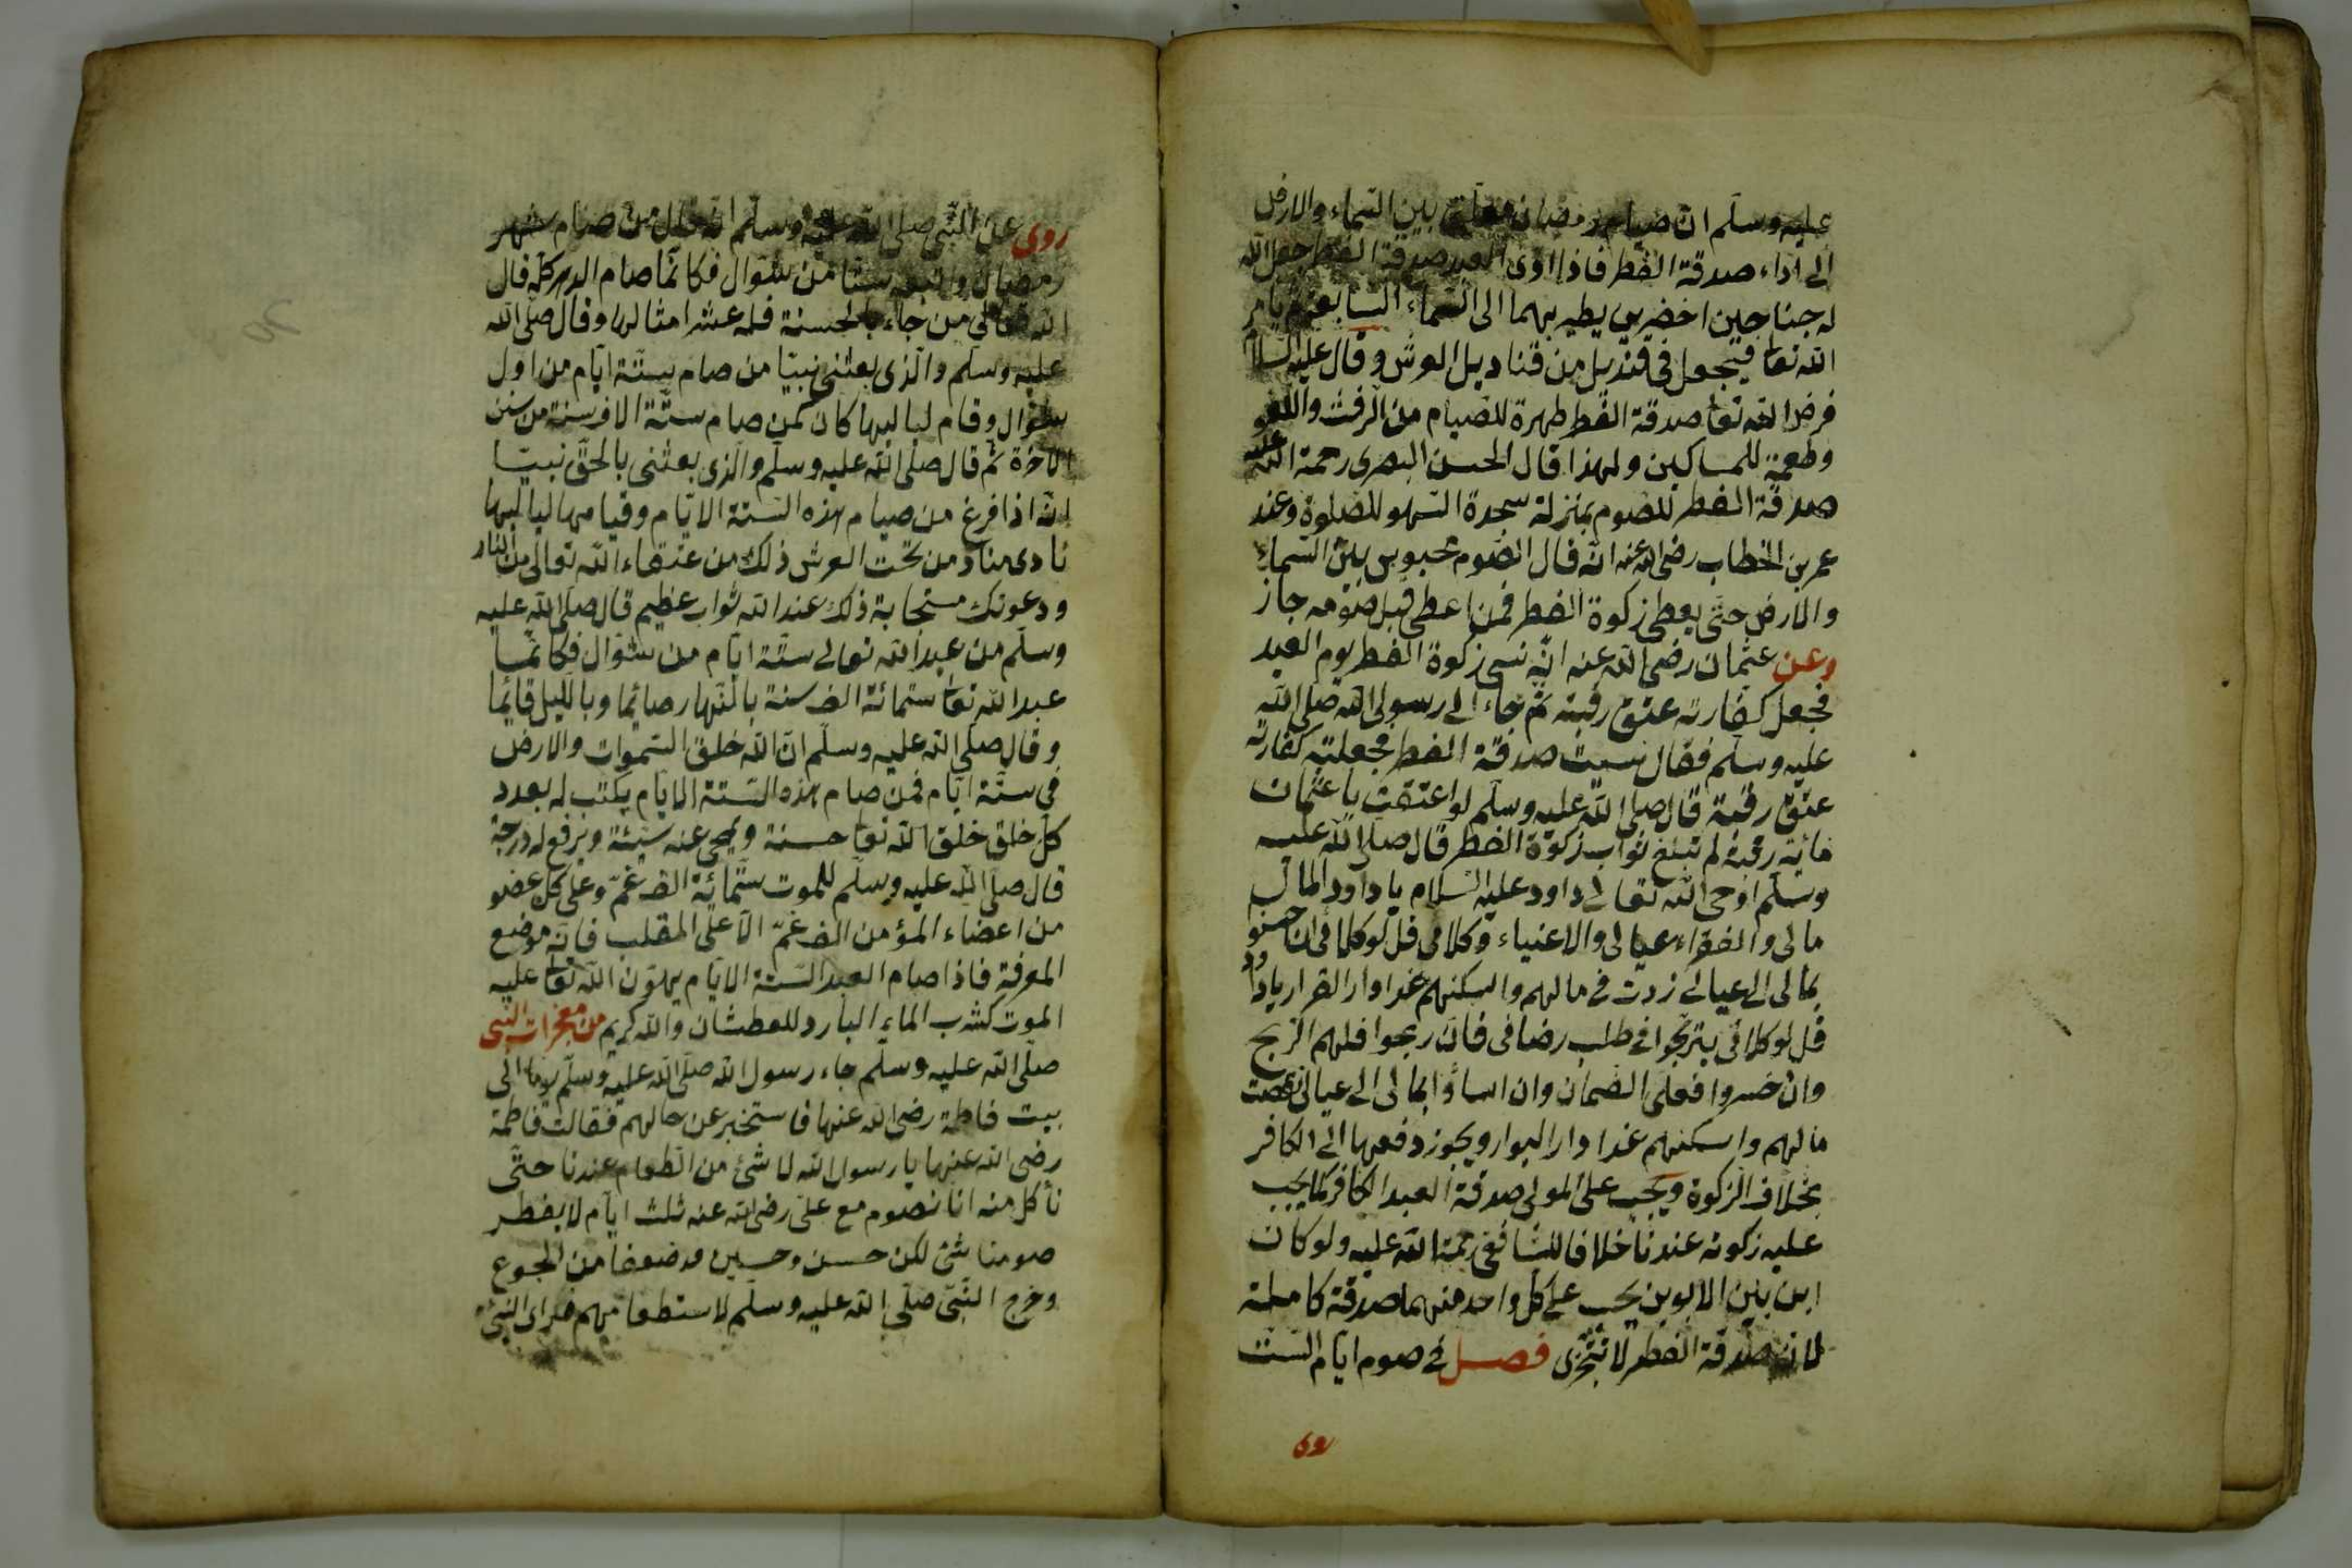 عليه وسلم ان صيام رمضان معلق بين السماء والارض
الى اداء صدقة الفطر فاذا ادى العبد صدقة الفطر جعل الله
له جناحين اخضرين يطير بهما الى السماء السابعة ثم يامر
الله تعا فيجعل فى قنديل من قناديل العرش وقال عليه السلام
فرض الله تعا صدقة الفطر طهرة للصيام من الرفث واللغو
وطعمة للمساكين ولهذا قال الحسن البصرى رحمة الله عليه
صدقة الفطر للصوم بمنزلة سجدة السهو للصلوة وعند
عمر بن الخطاب رضى الله عنه انه قال الصوم محبوس بين السماء
والارض حتى يعطى زكوة الفطر فمن اعطى قبل صومه جاز
وعن عثمان رضى الله عنه انه نسى زكوة الفطر يوم العيد
فجعل كفارته عتق رقبة ثم جاء الى رسول الله صلى الله
عليه وسلم فقال نسيت صدقة الفطر فجعلت كفارته
عتق رقبة قال صلى الله عليه وسلم لو اعتقت يا عثمان
مائة رقبة لم تبلغ ثواب زكوة الفطر قال صلى الله عليه
وسلم اوحى الله تعالى داود عليه السلام يا داود المال
مالى والفقراء عيالى والاغنياء وكلائى قل لوكلائى ان احسنوا
بمالى الى عيالى زدت فى مالهم واسكنهم غدا دار القرار يا داود
قل لوكلائى يتربحوا فى طلب رضائى فان ربحوا فلهم الربح
وان خسروا فعلى الضمان وان اساؤا بمالى الى عيالى نقصت
مالهم واسكنهم غدا دار البوار ويجوز دفعها الى الكافر
بخلاف الزكوة ويجب على المولى صدقة العبد الكافر كما يجب
عليه زكوته عندنا خلافا للشافعى رحمة الله عليه ولو كان
ابن بين الابوين يجب على كل واحد منهما صدقة كاملة
لان صدقة الفطر لا تتجزى فصل فى صوم ايام الست
روى
روى عن النبى صلى الله عليه وسلم انه قال من صام شهر
رمضان واتبعه ستا من شوال فكانما صام الدهر كله قال
الله تعالى من جاء بالحسنة فله عشر امثالها وقال صلى الله
عليه وسلم والذى بعثنى نبيا من صام ستة ايام من اول
شوال وقام لياليها كان كمن صام ستة الاف سنة من سنن
الاخرة ثم قال صلى الله عليه وسلم والذى بعثنى بالحق نبيا
انه اذا فرغ من صيام هذه الستة الايام وقيامها لياليها
نادى مناد من تحت العرش ذلك من عتقاء الله تعالى من النار
ودعوتك مستجابة ذلك عند الله ثواب عظيم قال صلى الله عليه
وسلم من عبد الله تعالى ستة ايام من شوال فكانما
عبد الله تعا ستمائة الف سنة بالنهار صائما وبالليل قائما
وقال صلى الله عليه وسلم ان الله خلق السموات والارض
فى ستة ايام فمن صام هذه الستة الايام يكتب له بعدد
كل خلق خلق الله تعا حسنة ويمحى عنه سيئة ويرفع له درجة
قال صلى الله عليه وسلم للموت ستمائة الف غم وعلى كل عضو
من اعضاء المؤمن الف غم الا على المقلب فانه موضع
المعرفة فاذا صام العبد الستة الايام يهون الله تعا عليه
الموت كشرب الماء البارد للعطشان والله كريم من معجزات النبى
صلى الله عليه وسلم جاء رسول الله صلى الله عليه وسلم يوما الى
بيت فاطمة رضى الله عنها فاستخبر عن حالهم فقالت فاطمة
رضى الله عنها يا رسول الله لا شئ من الطعام عندنا حتى
نأكل منه انا نصوم مع على رضى الله عنه ثلث ايام لا يفطر
صومنا شئ لكن حسن وحسين قد ضعفا من الجوع
وخرج النبى صلى الله عليه وسلم لاستطعامهم فراى النبى